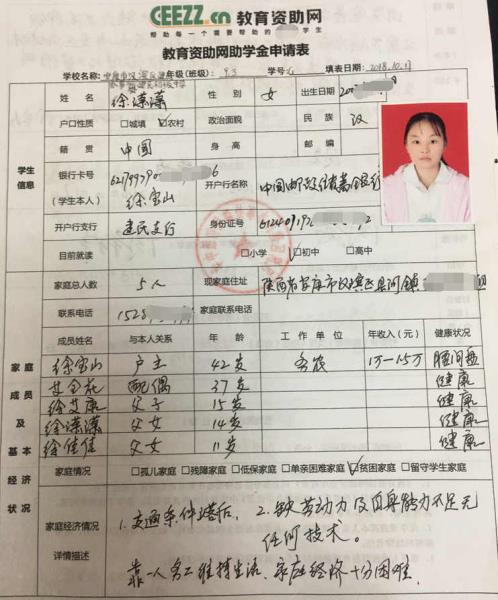 GEEZZ.cn 教育资助网
帮助每一个需要帮助的 学生
教育资助网助学金申请表
学校名称: 年级(班级): 9.3 学号: 填表日期: 2018.10.17
姓名 徐潆潆 性别 女 出生日期
户口性质 □城填 ☑农村 政治面貌 民族 汉
籍贯 中国 身高 邮编
学生信息
银行卡号 开户行名称 中国邮政储蓄银行
(学生本人) 徐宝山
开户行支行 建民支行 身份证号
目前就读 □小学 ☑初中 □高中
家庭总人数 5人 现家庭住址 陕西省安康市汉滨区
联系电话 1528 家庭联系电话
家庭成员及基本经济状况
成员姓名 与本人关系 年龄 工作单位 年收入(元) 健康状况
徐宝山 户主 42岁 务农 1万-1.5万 腰间盘
配偶 37岁 健康
徐艾康 父子 15岁 健康
徐潆潆 父女 14岁 健康
徐佳佳 父女 11岁 健康
家庭情况 □孤儿家庭 □残障家庭 □低保家庭 □单亲困难家庭 ☑贫困家庭 □留守学生家庭
家庭经济情况详情描述
1.交通条件落后, 2.缺劳动力及自身能力不足无
任何技术。
靠一人务工维持生活、家庭经济十分困难.